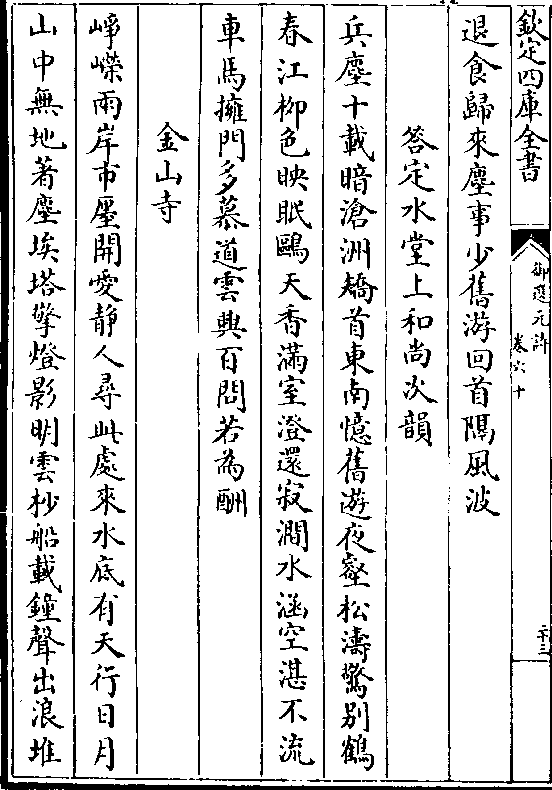 欽定四庫全書
御選元詩
卷六十
二十三
退食歸來塵事少舊游回首隔風波
答定水堂上和尚次韻
兵塵十載暗滄洲矯首東南憶舊遊夜壑松濤驚别鶴
春江栁色映眠鷗天香滿室澄還寂澗水涵空湛不流
車馬擁門多慕道雲興百問若為酬
金山寺
崢嶸兩岸市廛開愛静人尋此處來水底有天行日月
山中無地著塵埃塔擎燈影明雲杪船載鐘聲出浪堆